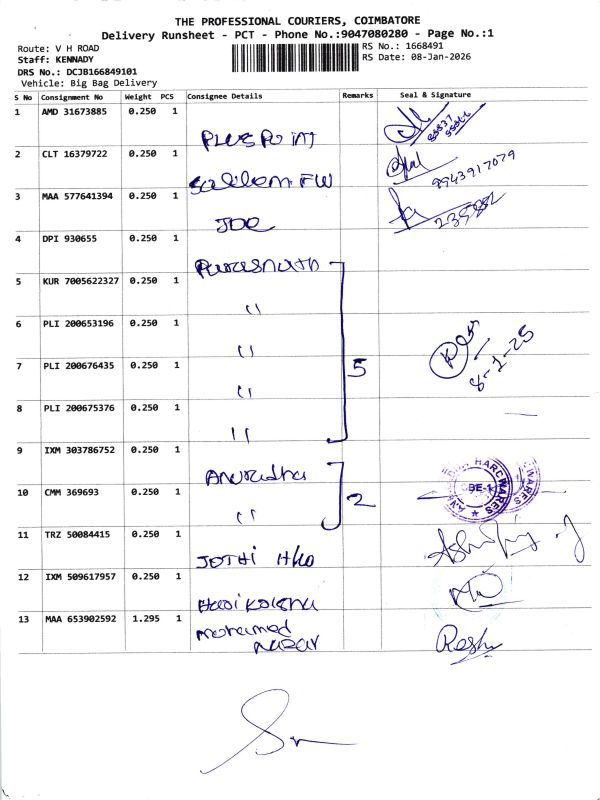 THE PROFESSIONAL COURIERS, COIMBATORE
Delivery Runsheet - PCT - Phone No.:9047080280 - Page No.:1
Route: V H ROAD
RS No.: 1668491
Staff: KENNADY
RS Date: 08-Jan-2026
DRS No.: DCJB166849101
Vehicle: Big Bag Delivery
S No Consignment No Weight PCS Consignee Details Remarks Seal & Signature
1 AMD 31673885 0.250 1 PLUS POINT
2 CLT 16379722 0.250 1 FW 9943917079
3 MAA 577641394 0.250 1 JOE
4 DPI 930655 0.250 1 Parasnath
5 KUR 7005622327 0.250 1 "
6 PLI 200653196 0.250 1 "
7 PLI 200676435 0.250 1 " 5 8-1-25
8 PLI 200675376 0.250 1 "
9 IXM 303786752 0.250 1 Anuradha
10 CMM 369693 0.250 1 " 2 CBE-1
11 TRZ 50084415 0.250 1 JOTHI H/W
12 IXM 509617957 0.250 1 Harikrishna
13 MAA 653902592 1.295 1 Mohamed